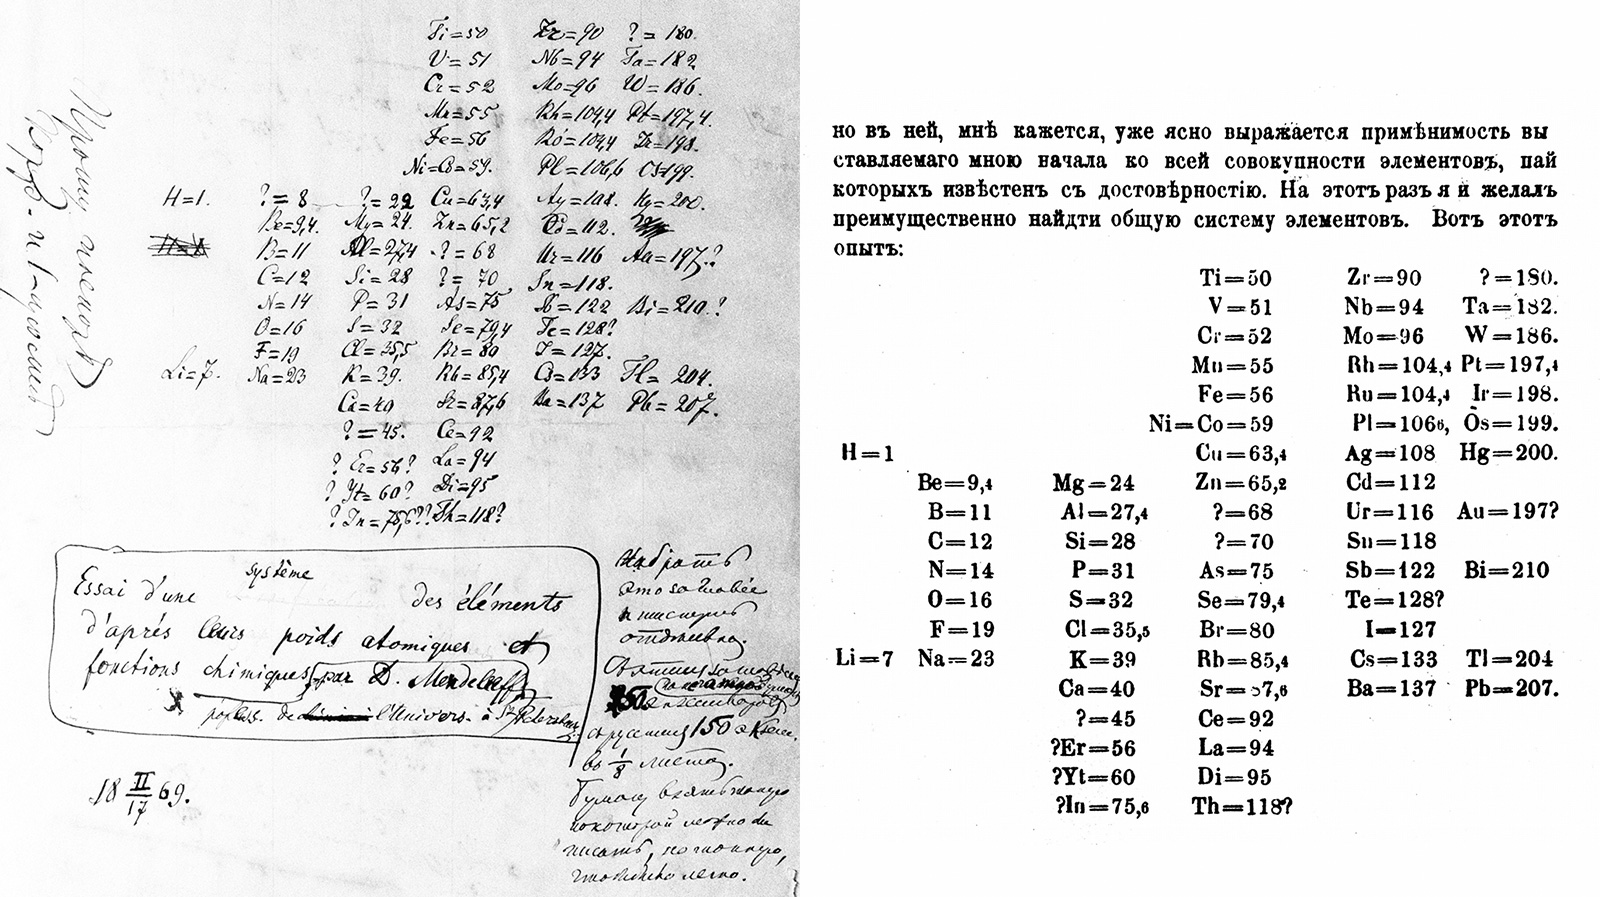 Ti=50 Zr=90 ?=180.
V=51 Nb=94 Ta=182.
Cr=52 Mo=96 W=186.
Mn=55 Rh=104,4 Pt=197,4.
Fe=56 Ro=104,4 Ir=198.
Ni=Co=59. Pl=106,6 Os=199.
H=1. ?=8 ?=22 Cu=63,4 Ag=108. Hg=200.
Be=9,4. Mg=24. Zn=65,2 Cd=112.
B=11 Al=27,4 ?=68 Ur=116 Au=197?
C=12 Si=28 ?=70 Sn=118.
N=14 P=31 As=75 Sb=122 Bi=210?
O=16 S=32 Se=79,4 Te=128?
F=19 Cl=35,5 Br=80 I=127.
Li=7. Na=23 K=39. Rb=85,4 Cs=133 Tl=204.
Ca=40 Sr=87,6 Ba=137 Pb=207.
?=45. Ce=92
? Er=56? La=94
? Yt=60? Di=95
? In=75,6?? Th=118?
Essai d'une système des éléments
d'après leurs poids atomiques et
fonctions chimiques par D. Mendeleeff
profess. de l'Univers. à
18 II/17 69.
Набрать
150 экзем.
въ 1/8 листа.
но въ ней, мнѣ кажется, уже ясно выражается примѣнимость вы
ставляемаго мною начала ко всей совокупности элементовъ, пай
которыхъ извѣстенъ съ достовѣрностію. На этотъ разъ я и желалъ
преимущественно найдти общую систему элементовъ. Вотъ этотъ
опытъ:
Ti=50 Zr=90 ?=180.
V=51 Nb=94 Ta=182.
Cr=52 Mo=96 W=186.
Mn=55 Rh=104,4 Pt=197,4
Fe=56 Ru=104,4 Ir=198.
Ni=Co=59 Pl=1066, Os=199.
H=1 Cu=63,4 Ag=108 Hg=200.
Be=9,4 Mg=24 Zn=65,2 Cd=112
B=11 Al=27,4 ?=68 Ur=116 Au=197?
C=12 Si=28 ?=70 Sn=118
N=14 P=31 As=75 Sb=122 Bi=210
O=16 S=32 Se=79,4 Te=128?
F=19 Cl=35,5 Br=80 I=127
Li=7 Na=23 K=39 Rb=85,4 Cs=133 Tl=204
Ca=40 Sr=87,6 Ba=137 Pb=207.
?=45 Ce=92
?Er=56 La=94
?Yt=60 Di=95
?In=75,6 Th=118?